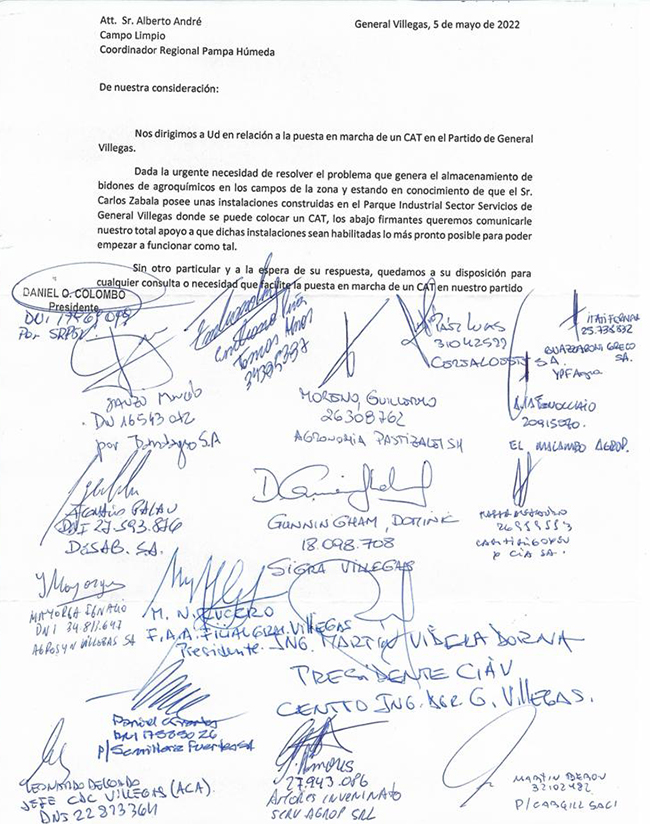 Att. Sr. Alberto André
General Villegas, 5 de mayo de 2022
Campo Limpio
Coordinador Regional Pampa Húmeda
De nuestra consideración:
Nos dirigimos a Ud en relación a la puesta en marcha de un CAT en el Partido de General
Villegas.
Dada la urgente necesidad de resolver el problema que genera el almacenamiento de
bidones de agroquímicos en los campos de la zona y estando en conocimiento de que el Sr.
Carlos Zabala posee unas instalaciones construidas en el Parque Industrial Sector Servicios de
General Villegas donde se puede colocar un CAT, los abajo firmantes queremos comunicarle
nuestro total apoyo a que dichas instalaciones sean habilitadas lo más pronto posible para poder
empezar a funcionar como tal.
Sin otro particular y a la espera de su respuesta, quedamos a su disposición para
cualquier consulta o necesidad que facilite la puesta en marcha de un CAT en nuestro partido
DANIEL O. COLOMBO
Presidente
DNI
Por
34395397
31042599
S.A.
25.736.892
S.A.
YPF Agro
DNI 16543042
por S.A
MORENO, GUILLERMO
26308762
AGRONOMIA PASTIZALES SH
20915070.
EL MALAMBO AGROP.
GALAU
DNI 27.593.876
DISAB. S.A.
GUNNINGHAM, DOMINK
18.098.708
SIGRA VILLEGAS
CIA SA.
MAYORGA IGNACIO
DNI 34.811.647
AGROSYN VILLEGAS SA
M. N. LUCERO
F.A.A. FILIAL GRAL. VILLEGAS
Presidente.
ING. MARTIN VIDELA DORNA
PRESIDENTE CIAV
CENTRO ING. AGR. G. VILLEGAS.
Daniel
DNI 17539026
P/ Semillera Fuentes SA
LEONARDO DELGADO
JEFE CDC VILLEGAS (ACA).
DNI 22873364
27.943.086
SERV AGROP SRL
MARTIN
32102482
P/ CARGILL SACI